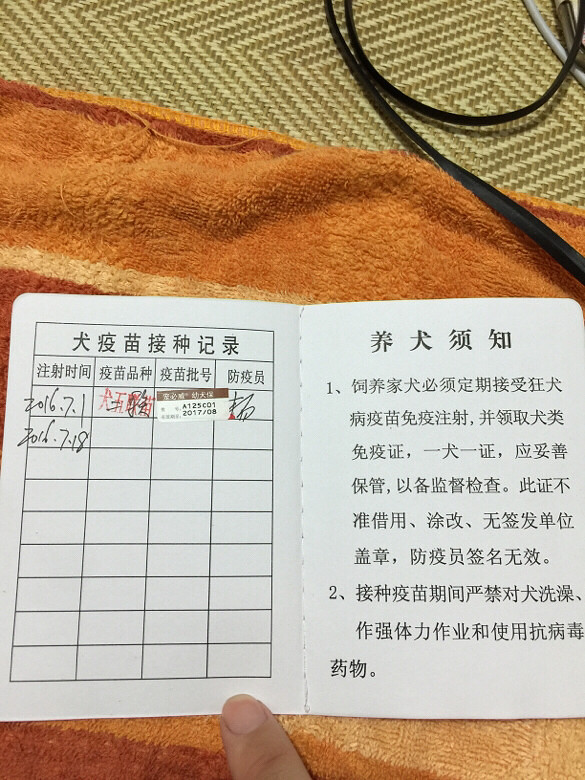 犬疫苗接种记录
注射时间 疫苗品种 疫苗批号 防疫员
2016.7.1 犬五联苗 宠必威 幼犬保
A125C01
2017/08
2016.7.18
养犬须知
1、饲养家犬必须定期接受狂犬
病疫苗免疫注射,并领取犬类
免疫证，一犬一证，应妥善
保管,以备监督检查。此证不
准借用、涂改、无签发单位
盖章，防疫员签名无效。
2、接种疫苗期间严禁对犬洗澡、
作强体力作业和使用抗病毒
药物。